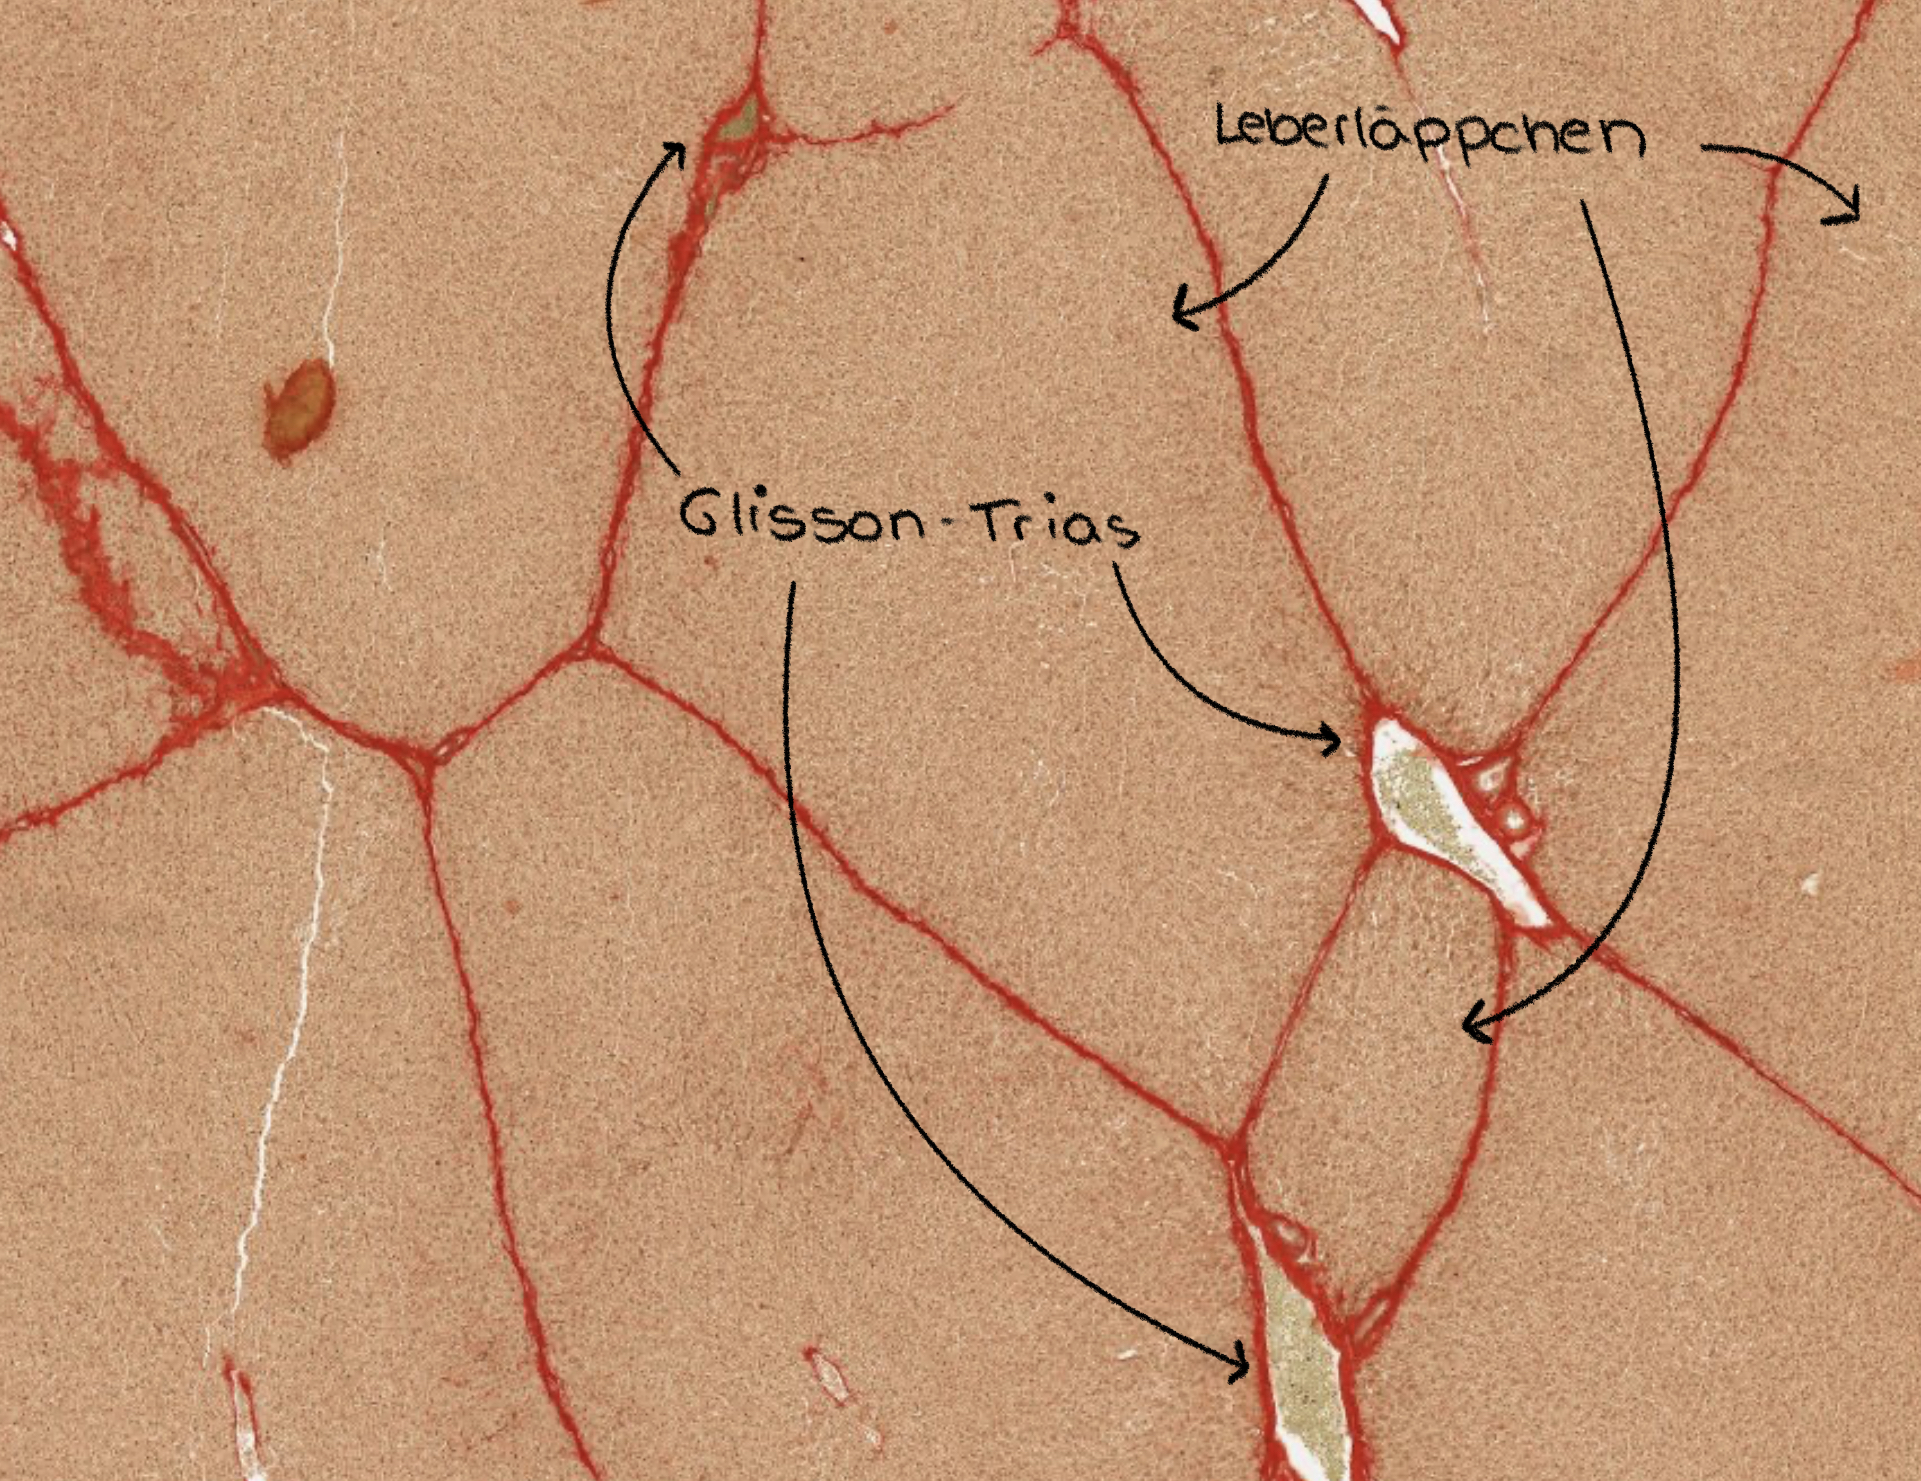 Leberläppchen
Glisson-Trias